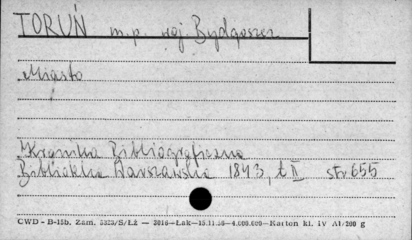 TORUŃ m.p. woj. Bydgoszcz
Miasto
Kronika Bibliograficzna
Biblioteka Warszawska 1843, t. II str 655
CWD - B-15b. Zam. 5323/S/Łź — 2016 — Łak — 15.11.56 — 4.000.000 — Karton kl. IV A1/200 g